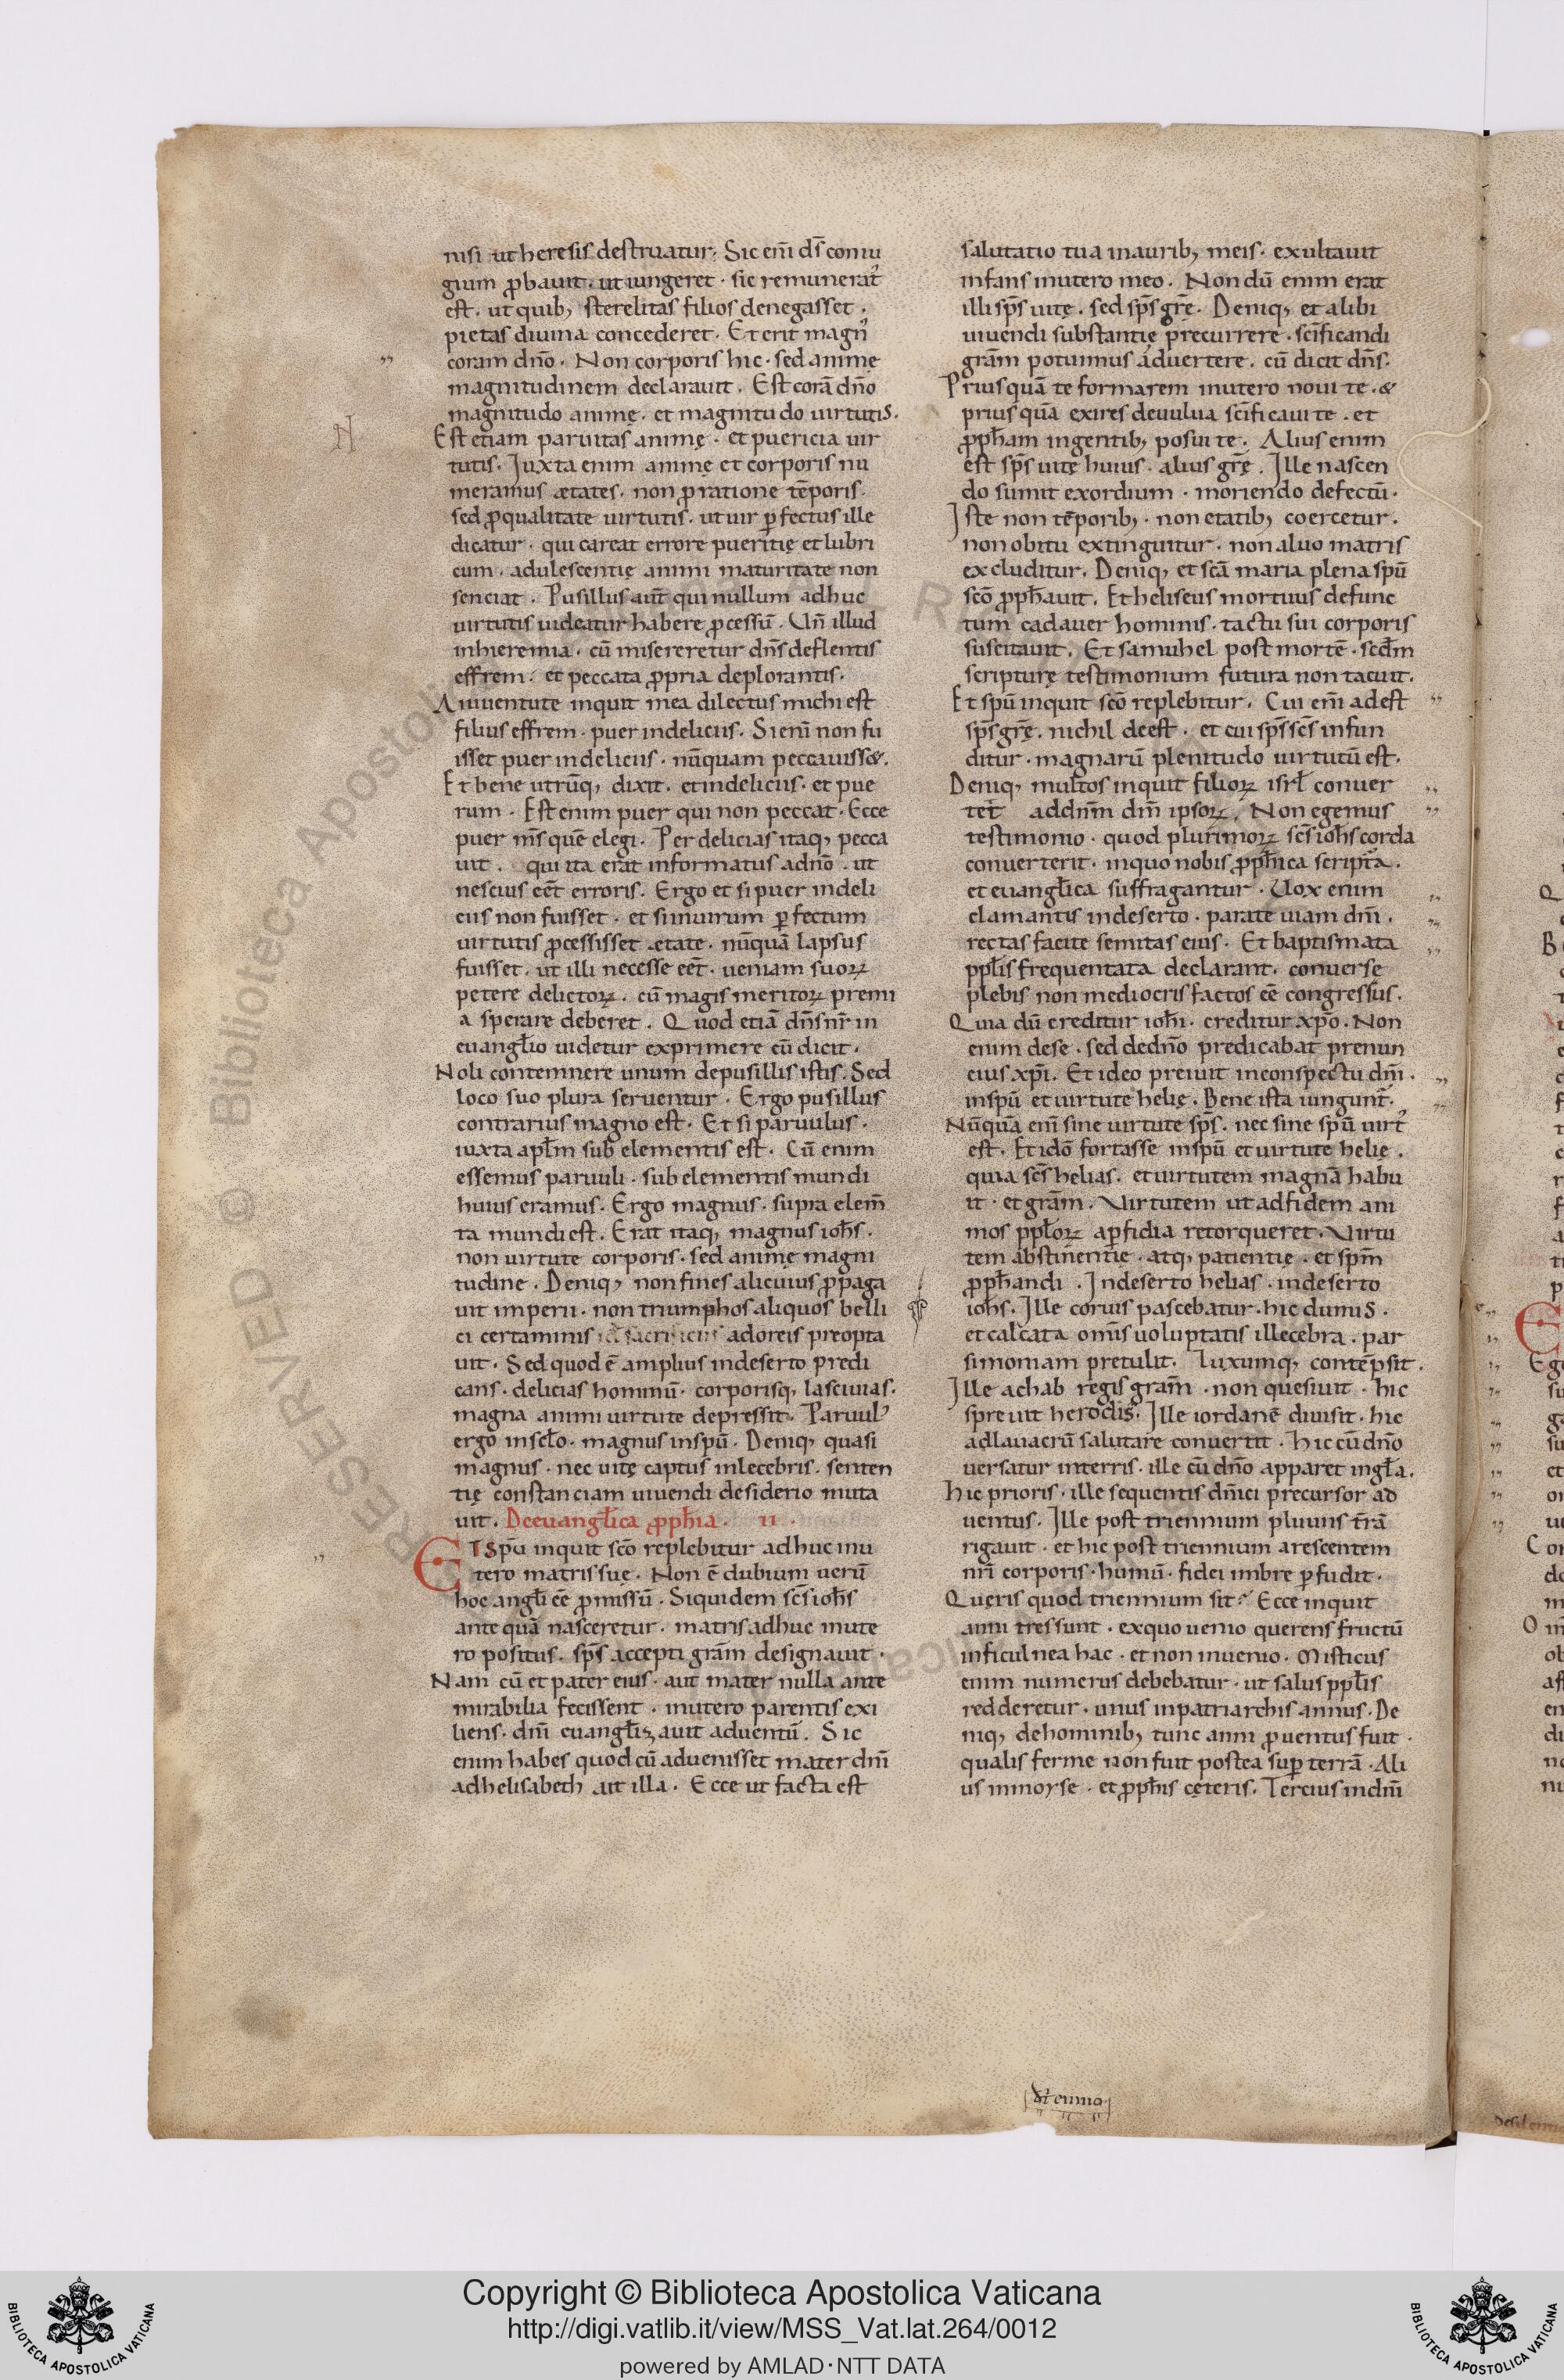 nisi ut heresis destruatur. Sic eni᷒ ds̄ coniu
gium ꝓbauit. ut iungeret. sic remunerat᷒
est. ut quib, sterelitas filios denegasset.
pietas diuina concederet. Et erit magn᷒
coram dn̄o. Non corporis hic. sed animę
magnitudinem declarauit. Est corā dn̄o
magnitudo animę. et magnitudo uirtutis.
Est etiam paruitas animę. et puericia uir
tutis. Iuxta enim animę et corporis nu
meramus ætates. non ꝓ ratione tēporis.
sed ꝓ qualitate uirtutis. ut uir ꝑfectus ille
dicatur. qui careat errore pueritię et lubri
cum. adulescentię animi maturitate non
senciat. Pusillus aut̄ qui nullum adhuc
uirtutis uideatur habere ꝓcessū. Un̄ illud
in hieremia. cū misereretur dn̄s deflentis
effrem. et peccata ꝓpria deplorantis.
A iuuentute inquit mea dilectus michi est
filius effrem. puer in deliciis. Si enī non fu
isset puer in deliciis. nūquam peccauiss&.
Et bene utrūq, dixit. et in deliciis. et pue
rum. Est enim puer qui non peccat. Ecce
puer m̄s quē elegi. Per delicias itaq, pecca
uit. qui ita erat informatus a dn̄o. ut
nescius eēt erroris. Ergo et si puer in deli
ciis non fuisset. et si in uirum ꝑfectum
uirtutis ꝓcessisset ætate. nūquā lapsus
fuisset. ut illi necesse eēt. ueniam suoꝝ
petere delictoꝝ. cū magis meritoꝝ premi
a sperare deberet. Quod etiā dn̄s nr̄ in
euangł̄io uidetur exprimere cū dicit.
Noli contemnere unum de pusillis istis. Sed
loco suo plura seruentur. Ergo pusillus
contrarius magno est. Et si paruulus.
iuxta apł̄m sub elementis est. Cū enim
essemus paruuli. sub elementis mundi
huius eramus. Ergo magnus. supra elem̄
ta mundi est. Erat itaq, magnus ioh̄s.
non uirtute corporis. sed animę magni
tudine. Deniq, non fines alicuius ꝓpaga
uit imperii. non triumphos aliquos belli
ci certaminis adoreis preopta
uit. Sed quod ē amplius in deserto predi
cans. delicias hominū. corporisq, lasciuias.
magna animi uirtute depressit. Paruul᷒
ergo in scł̄o. magnus in spū. Deniq, quasi
magnus. nec uitę captus inlecebris. senten
tię constanciam uiuendi desiderio muta
uit. De euangł̄ica ꝓph̄ia. II.
Et spū inquit scō replebitur adhuc in u
tero matris suę. Non ē dubium uerū
hoc angł̄i eē ꝓmissū. Siquidem scs̄ ioh̄s
ante quā nasceretur. matris adhuc in ute
ro positus. sps̄ accepti grām designauit.
Nam cū et pater eius. aut mater nulla ante
mirabilia fecissent. in utero parentis exi
liens. dn̄i euangł̄izauit aduentū. Sic
enim habes quod cū aduenisset mater dn̄i
ad helisabeth ait illa. Ecce ut facta est
salutatio tua in aurib, meis. exultauit
infans in utero meo. Non dū enim erat
illi sps̄ uitę. sed sps̄ grę̄. Deniq, et alibi
uiuendi substantię precurrere. scīficandi
grām potuimus aduertere. cū dicit dn̄s.
Priusquā te formarem in utero noui te. &
prius quā exires de uulua scīficaui te. et
ꝓph̄am in gentib, posui te. Alius enim
est sps̄ uitę huius. alius grę̄. Ille nascen
do sumit exordium. moriendo defectū.
Iste non tēporib,. non etatib, coercetur.
non obitu extinguitur. non aluo matris
excluditur. Deniq, et scā maria plena spū
scō ꝓph̄auit. Et heliseus mortuus defunc
tum cadauer hominis. tactu sui corporis
suscitauit. Et samuhel post mortē. scđm
scripturę testimonium futura non tacuit.
Et spū inquit scō replebitur. Cui eni᷒ adest
sps̄ grę̄. nichil deest. et cui sps̄ scs̄ infun
ditur. magnarū plenitudo uirtutū est.
Deniq, multos inquit filioꝝ isrł̄ conuer
tet ad dn̄m dm̄ ipsoꝝ. Non egemus
testimonio. quod plurimoꝝ scs̄ ioh̄s corda
conuerterit. in quo nobis ꝓph̄ica script᷒a.
et euangł̄ica suffragantur. Uox enim
clamantis in deserto. parate uiam dn̄i.
rectas facite semitas eius. Et baptismata
ppł̄is frequentata declarant. conuerse
plebis non mediocris factos eē congressus.
Quia dū creditur ioh̄i. creditur xp̄o. Non
enim de se. sed de dn̄o predicabat prenun
cius xp̄i. Et ideo preiuit in conspectu dn̄i.
in spū et uirtute helię. Bene ista iungunt᷒.
Nūquā eni᷒ sine uirtute sps̄. nec sine spū uirt᷒
est. Et ideō fortasse in spū et uirtute helię.
quia scs̄ helias. et uirtutem magnā habu
it. et grām. Uirtutem ut ad fidem ani
mos ppł̄oꝝ a ꝑfidia retorqueret. Uirtu
tem abstinentię. atq, patientię. et spm̄
ꝓph̄andi. In deserto helias. in deserto
ioh̄s. Ille coruis pascebatur. hic dumis.
et calcata omīs uoluptatis illecebra. par
simoniam pretulit. luxumq, contēpsit.
Ille achab regis grām. non quesiuit. hic
spreuit herodis. Ille iordanē diuisit. hic
ad lauacrū salutare conuertit. Hic cū dn̄o
uersatur in terris. ille cū dn̄o apparet in gł̄a.
hic prioris. ille sequentis dn̄ici precursor ad
uentus. Ille post triennium pluuiis t̄rā
rigauit. et hic post triennium arescentem
nr̄i corporis humū. fidei imbre ꝑfudit.
Queris quod triennium sit? Ecce inquit
anni tres sunt. ex quo uenio querens fructū
in ficulnea hac. et non inuenio. Misticus
enim numerus debebatur. ut salus ppł̄is
redderetur. unus in patriarchis annus. De
niq, de hominib, tunc anni ꝓuentus fuit.
qualis ferme non fuit postea suꝑ terrā. Ali
us in moyse. et ꝓph̄is cęteris. Tercius in dn̄i
Copyright © Biblioteca Apostolica Vaticana
http://digi.vatlib.it/view/MSS_Vat.lat.264/0012
powered by AMLAD·NTT DATA